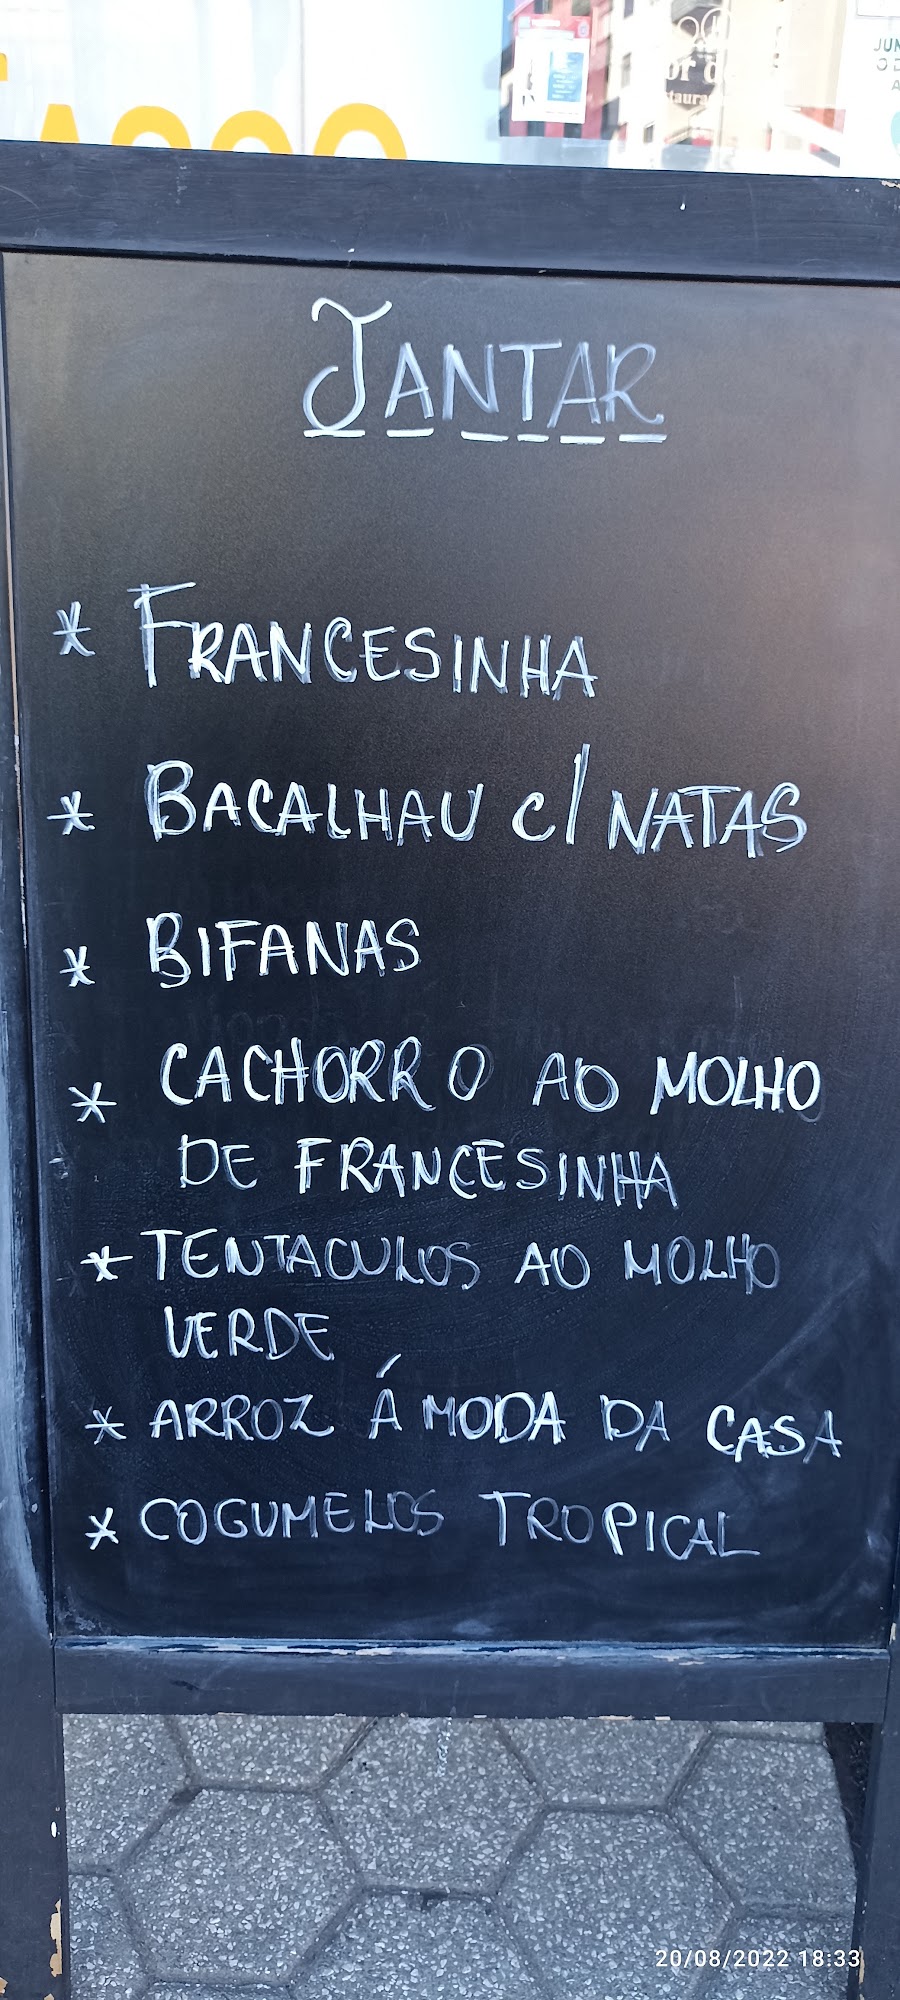 JANTAR
* FRANCESINHA
* BACALHAU C/ NATAS
* BIFANAS
* CACHORRO AO MOLHO
DE FRANCESINHA
* TENTACULOS AO MOLHO
VERDE
* ARROZ Á MODA DA CASA
* COGUMELOS TROPICAL
20/08/2022 18:33